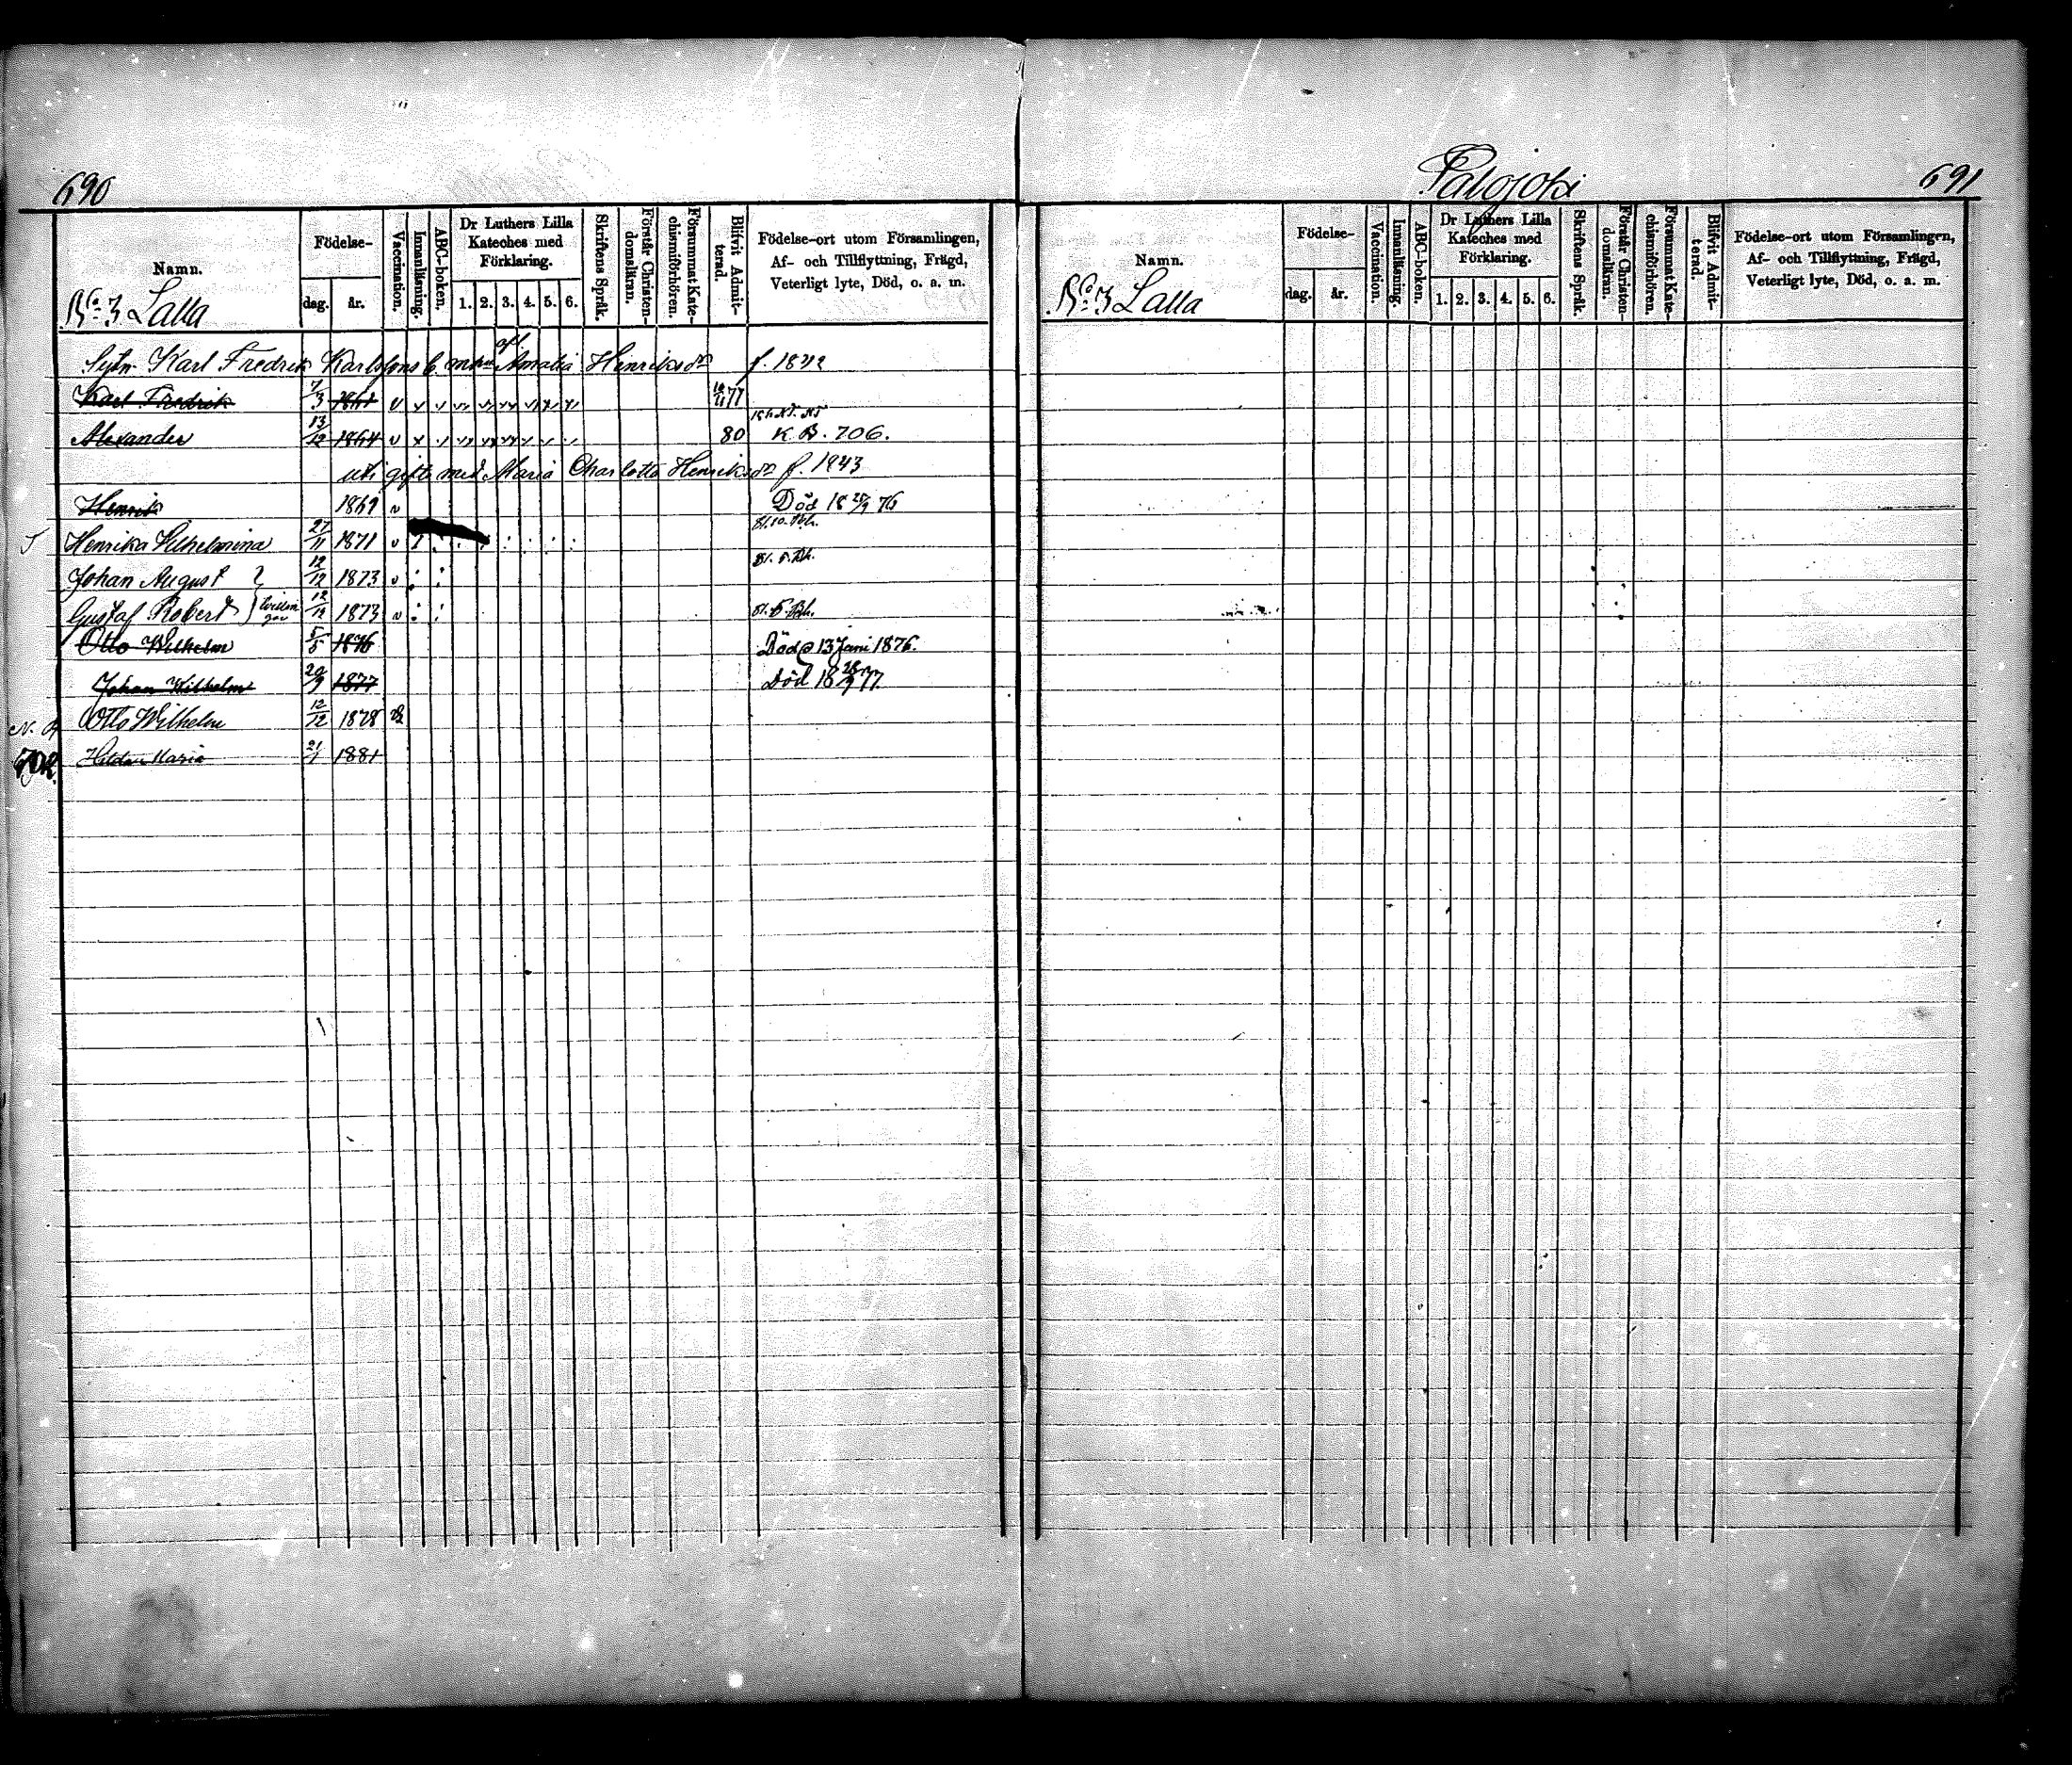 690
Namn.
Födelse-
dag. år.
Vaccination.
Innanläsning.
ABC-boken.
Dr Luthers Lilla
Kateches med
Förklaring.
1. 2. 3. 4. 5. 6.
Skriftens Språk.
Förstår Christen-
domsläran.
Försummat Kate-
chismiförhören.
Blifvit Admit-
terad.
Födelse-ort utom Församlingen,
Af- och Tillflyttning, Frägd,
Veterligt lyte, Död, o. a. m.
No 3 Lalla
Karl Fredrik Karlssons b. m. Amalia Henriksdr f. 1842
Karl Fredrik 7/3 1861 77
Alexander 13/12 1864 80 K.B. 706.
uti gifte med Maria Charlotta Henriksdr f. 1943
Henrik 1869 Död 18 /9 76
Henrika Vilhelmina 27/11 1871
Johan August 12/12 1873
Gustaf Robert 12/12 1873
Otto Wilhelm 5/5 1876 Död 13 Juni 1876.
Johan Wilhelm 20/9 1877 Död 18 28/9 77.
Otto Wilhelm 12/12 1878
Hilda Maria 21/1 1881
Palojoki
691
Namn.
Födelse-
dag. år.
Vaccination.
Innanläsning.
ABC-boken.
Dr Luthers Lilla
Kateches med
Förklaring.
1. 2. 3. 4. 5. 6.
Skriftens Språk.
Förstår Christen-
domsläran.
Försummat Kate-
chismiförhören.
Blifvit Admit-
terad.
Födelse-ort utom Församlingen,
Af- och Tillflyttning, Frägd,
Veterligt lyte, Död, o. a. m.
No 3 Lalla